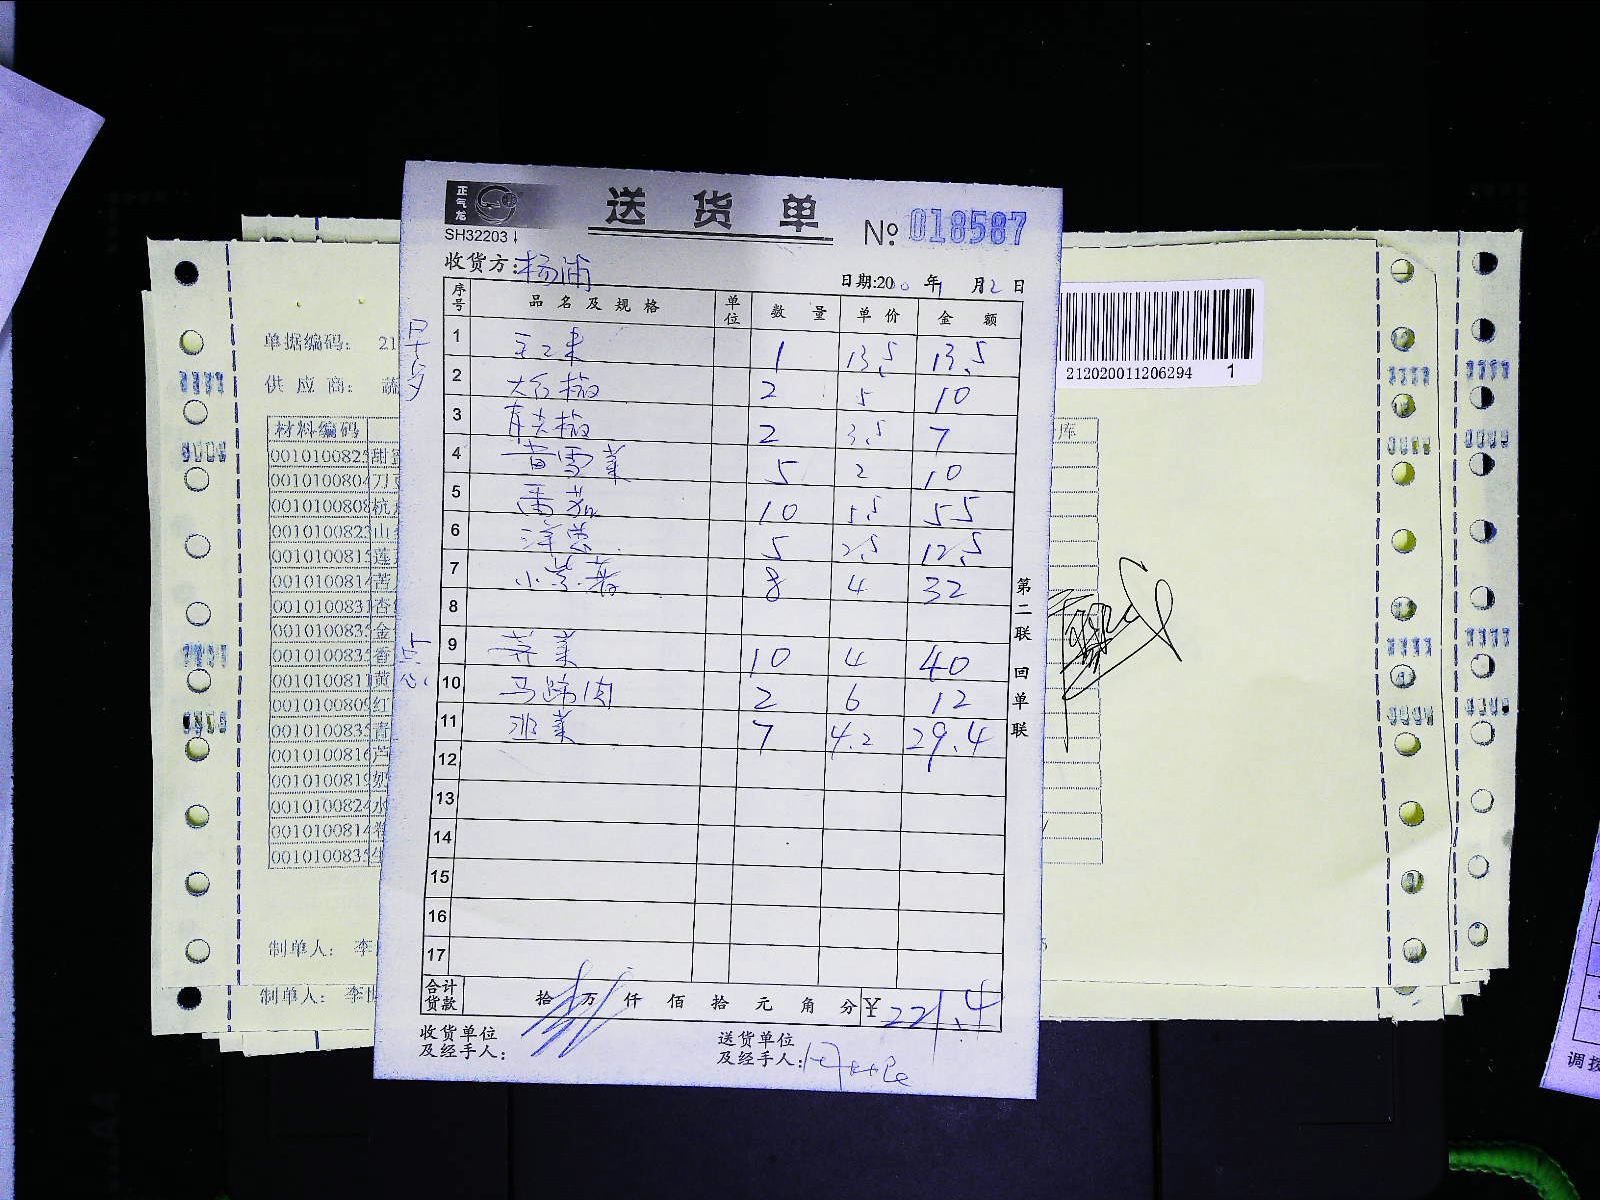 正气龙
送货单
№ 018587
SH32203
收货方: 杨浦
日期:20 年1月2日
序号 品名及规格 单位 数量 单价 金额
早
1 玉米 1 13.5 13.5
2 大台椒 2 5 10
3 青尖椒 2 3.5 7
4 雪菜 5 2 10
5 番茄 10 5.5 55
6 洋葱 5 2.5 12.5
7 8 4 32
8
点心
9 荠菜 10 4 40
10 马蹄肉 2 6 12
11 韭菜 7 4.2 29.4
12
13
14
15
16
17
合计货款 拾 万 仟 佰 拾 元 角 分 ¥ 221.4
收货单位及经手人:
送货单位及经手人:
第二联 回单联
单据编码: 21
供应商: 蔬
材料编码
001010082 甜
0010100804 刀
0010100808 杭
001010082 山
001010081 莲
001010081 苦
001010083 杏
001010083 金
001010083 香
001010081 黄
001010080 红
001010083 青
001010081 芦
001010081 奶
001010082 水
001010081
001010083 生
制单人: 李
制单人: 李
库
212020011206294 1
调拨